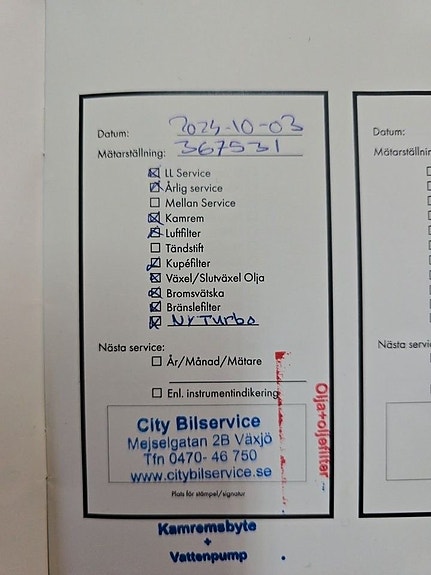 Datum: 2024-10-03
Mätarställning: 367531
LL Service
Årlig service
Mellan Service
Kamrem
Luftfilter
Tändstift
Kupéfilter
Växel/Slutväxel Olja
Bromsvätska
Bränslefilter
Ny Turbo
Nästa service:
År/Månad/Mätare
Enl. instrumentindikering
City Bilservice
Mejselgatan 2B Växjö
Tfn 0470- 46 750
www.citybilservice.se
Plats för stämpel/signatur
Olja+oljefilter
Kamremsbyte
+
Vattenpump
Datum:
Mätarställnin
Nästa servic